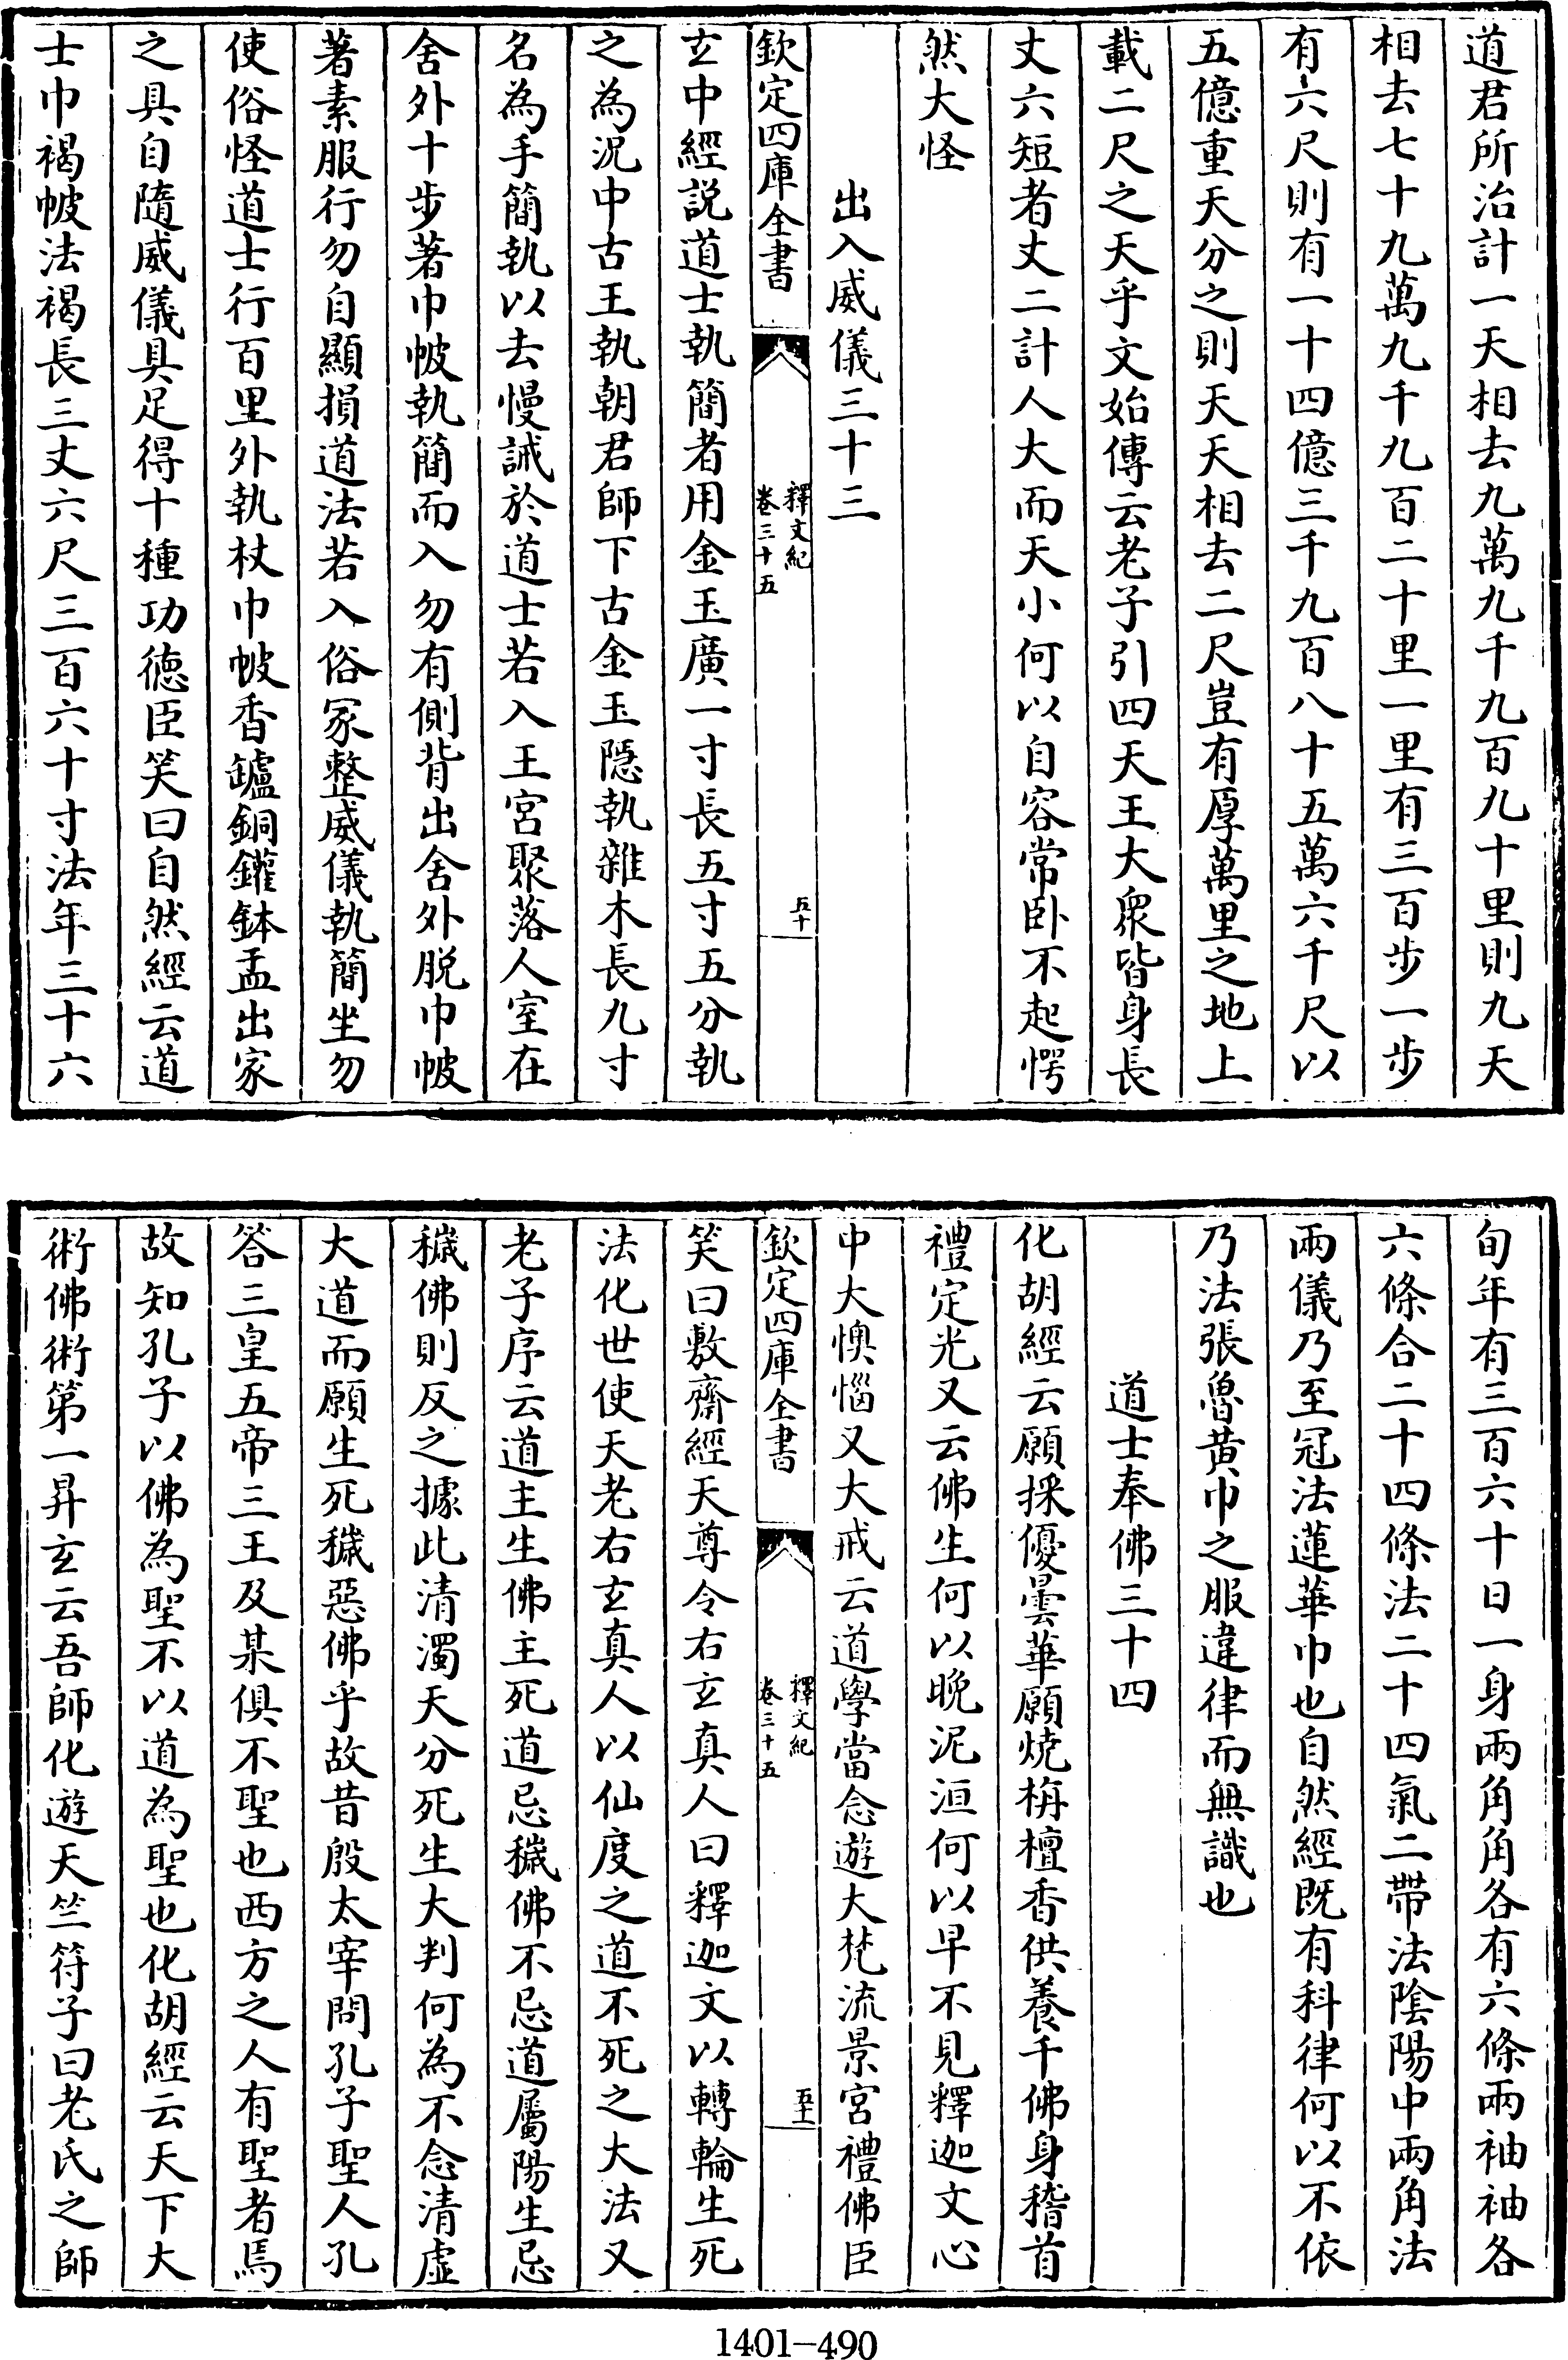 道君所治計一天相去九萬九千九百九十里則九天
相去七十九萬九千九百二十里一里有三百步一步
有六尺則有一十四億三千九百八十五萬六千尺以
五億重天分之則天天相去二尺豈有厚萬里之地上
載二尺之天乎文始傳云老子引四天王大衆皆身長
丈六短者丈二計人大而天小何以自容常卧不起愕
然大怪
出入威儀三十三
欽定四庫全書
釋文紀
卷三十五
五十
玄中經説道士執簡者用金玉廣一寸長五寸五分執
之為況中古王執朝君師下古金玉隱執雜木長九寸
名為手簡執以去慢誡於道士若入王宮聚落人室在
舍外十步著巾帔執簡而入勿有側背出舍外脱巾帔
著素服行勿自顯損道法若入俗冢整威儀執簡坐勿
使俗怪道士行百里外執杖巾帔香鑪銅鑵鉢盂出家
之具自隨威儀具足得十種功徳臣笑曰自然經云道
士巾褐帔法褐長三丈六尺三百六十寸法年三十六
旬年有三百六十日一身兩角角各有六條兩袖袖各
六條合二十四條法二十四氣二帶法陰陽中兩角法
兩儀乃至冠法蓮華巾也自然經既有科律何以不依
乃法張魯黄巾之服違律而無識也
道士奉佛三十四
化胡經云願採優曇華願燒栴檀香供養千佛身稽首
禮定光又云佛生何以晚泥洹何以早不見釋迦文心
中大懊惱又大戒云道學當念遊大梵流景宮禮佛臣
欽定四庫全書
釋文紀
卷三十五
五十一
笑曰敷齋經天尊令右玄真人曰釋迦文以轉輪生死
法化世使天老右玄真人以仙度之道不死之大法又
老子序云道主生佛主死道忌穢佛不忌道屬陽生忌
穢佛則反之據此清濁天分死生大判何為不念清虛
大道而願生死穢惡佛乎故昔殷太宰問孔子聖人孔
答三皇五帝三王及某俱不聖也西方之人有聖者焉
故知孔子以佛為聖不以道為聖也化胡經云天下大
術佛術第一昇玄云吾師化遊天竺符子曰老氏之師
1401-490